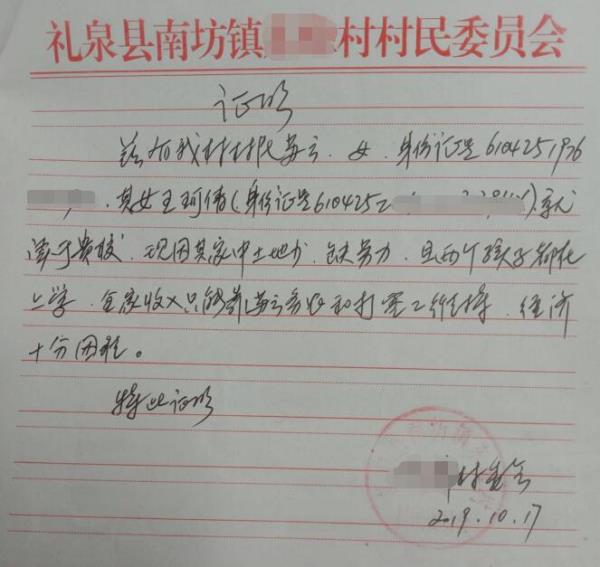 礼泉县南坊镇 村村民委员会
证明
兹有我村村民 云、女、身份证号6104251976
其女王珂倩(身份证号6104252 )就
读于贵校、现因其家中土地少、缺劳力、且两个孩子都在
上学、全家收入只能靠 云务农和打零工维持、经济
十分困难。
特此证明
村委会
2019.10.17